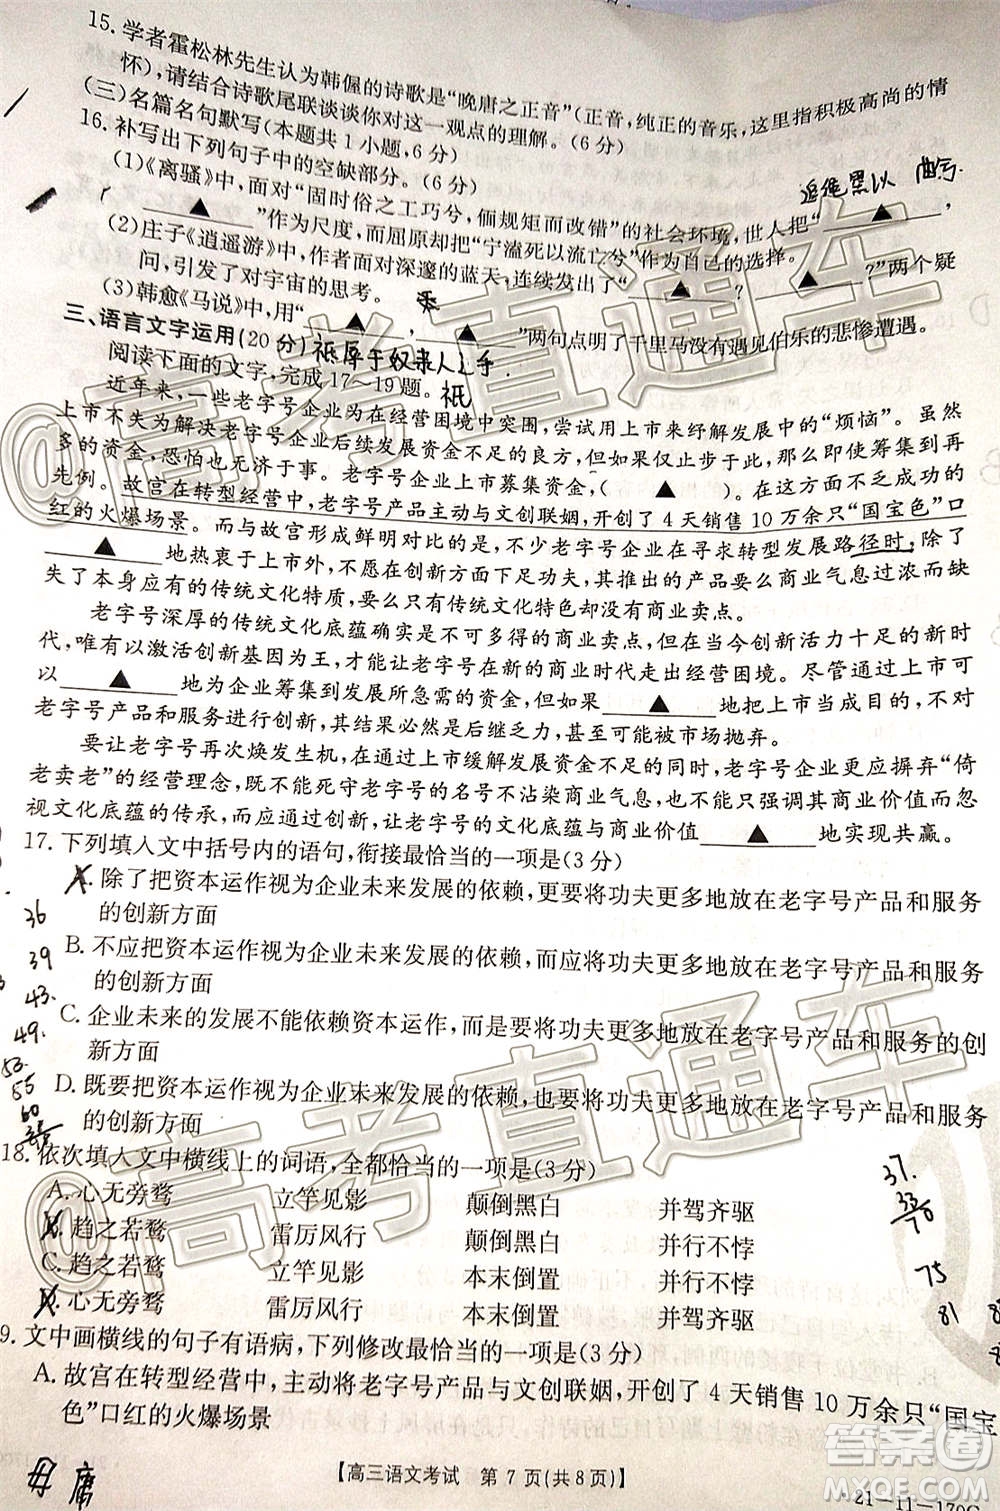 15. 学者霍松林先生认为韩偓的诗歌是“晚唐之正音”(正音,纯正的音乐,这里指积极高尚的情
怀),请结合诗歌尾联谈谈你对这一观点的理解。(6分)
(三)名篇名句默写(本题共1小题,6分)
16. 补写出下列句子中的空缺部分。(6分)
(1)《离骚》中,面对“固时俗之工巧兮,偭规矩而改错”的社会环境,世人把“
追绳墨以 曲兮
▲ ,
▲ ”作为尺度,而屈原却把“宁溘死以流亡兮”作为自己的选择。
(2)庄子《逍遥游》中,作者面对深邃的蓝天,连续发出了“ ▲ ? ▲ ?”两个疑
问,引发了对宇宙的思考。
(3)韩愈《马说》中,用“ ▲ , ▲ ”两句点明了千里马没有遇见伯乐的悲惨遭遇。
三、语言文字运用(20分)
祗辱于奴隶人之手
祗
阅读下面的文字,完成17~19题。
近年来,一些老字号企业为在经营困境中突围,尝试用上市来纾解发展中的“烦恼”。虽然
上市不失为解决老字号企业后续发展资金不足的良方,但如果仅止步于此,那么即使筹集到再
多的资金,恐怕也是无济于事。老字号企业上市募集资金,( ▲ )。在这方面,故宫已开了
先例。故宫在转型经营中,老字号产品主动与文创联姻,开创了4天销售10万余只“国宝色”口
红的火爆场景。而与故宫形成鲜明对比的是,不少老字号企业在寻求转型发展路径时,除了
▲ 地热衷于融资圈钱以外,不愿在创新方面下苦功,导致推出的产品要么商业气息过浓而缺
失了本身应有的传统文化特质,要么只有传统文化特色却没有商业卖点。
老字号深厚的传统文化底蕴确实是不可多得的商业卖点,但在当今创新活力十足的新时
代,唯有以激活创新基因为王,才能让老字号在新的商业时代走出经营困境。尽管通过上市可
以 ▲ 地为企业筹集到发展所急需的资金,但如果 ▲ ,把上市当成目的,不对
老字号产品和服务进行创新,其结果必然是后继乏力,甚至可能被市场抛弃。
要让老字号再次焕发生机,在通过上市缓解发展资金不足的同时,老字号企业更应摒弃“倚
老卖老”的经营理念,既不能死守老字号的名号不沾染商业气息,也不能只强调商业价值而忽
视文化底蕴的传承,而应通过创新,让老字号的文化底蕴与商业价值 ▲ 地实现共赢。
17. 下列填入文中括号内的语句,衔接最恰当的一项是(3分)
A. 除了把资本运作视为企业未来发展的依赖,更要将功夫更多地放在老字号产品和服务
的创新方面
B. 不应把资本运作视为企业未来发展的依赖,而应将功夫更多地放在老字号产品和服务
的创新方面
C. 企业未来的发展不能依赖资本运作,而是要将功夫更多地放在老字号产品和服务的创
新方面
D. 既要把资本运作视为企业未来发展的依赖,也要将功夫更多地放在老字号产品和服务
的创新方面
36
39
43.
49.
53.
55
60
18. 依次填入文中横线上的词语,全都恰当的一项是(3分)
A. 心无旁骛 立竿见影 颠倒黑白 并驾齐驱
B. 趋之若鹜 雷厉风行 颠倒黑白 并行不悖
C. 趋之若鹜 立竿见影 本末倒置 并行不悖
D. 心无旁骛 雷厉风行 本末倒置 并驾齐驱
37.
75
81
9. 文中画横线的句子有语病,下列修改最恰当的一项是(3分)
A. 故宫在转型经营中,主动将老字号产品与文创联姻,开创了4天销售10万余只“国宝
色”口红的火爆场景
【高三语文考试 第7页(共8页)】
·21-11-170C
@高考直通车
@高考直通车
答案圈
MXQE.COM